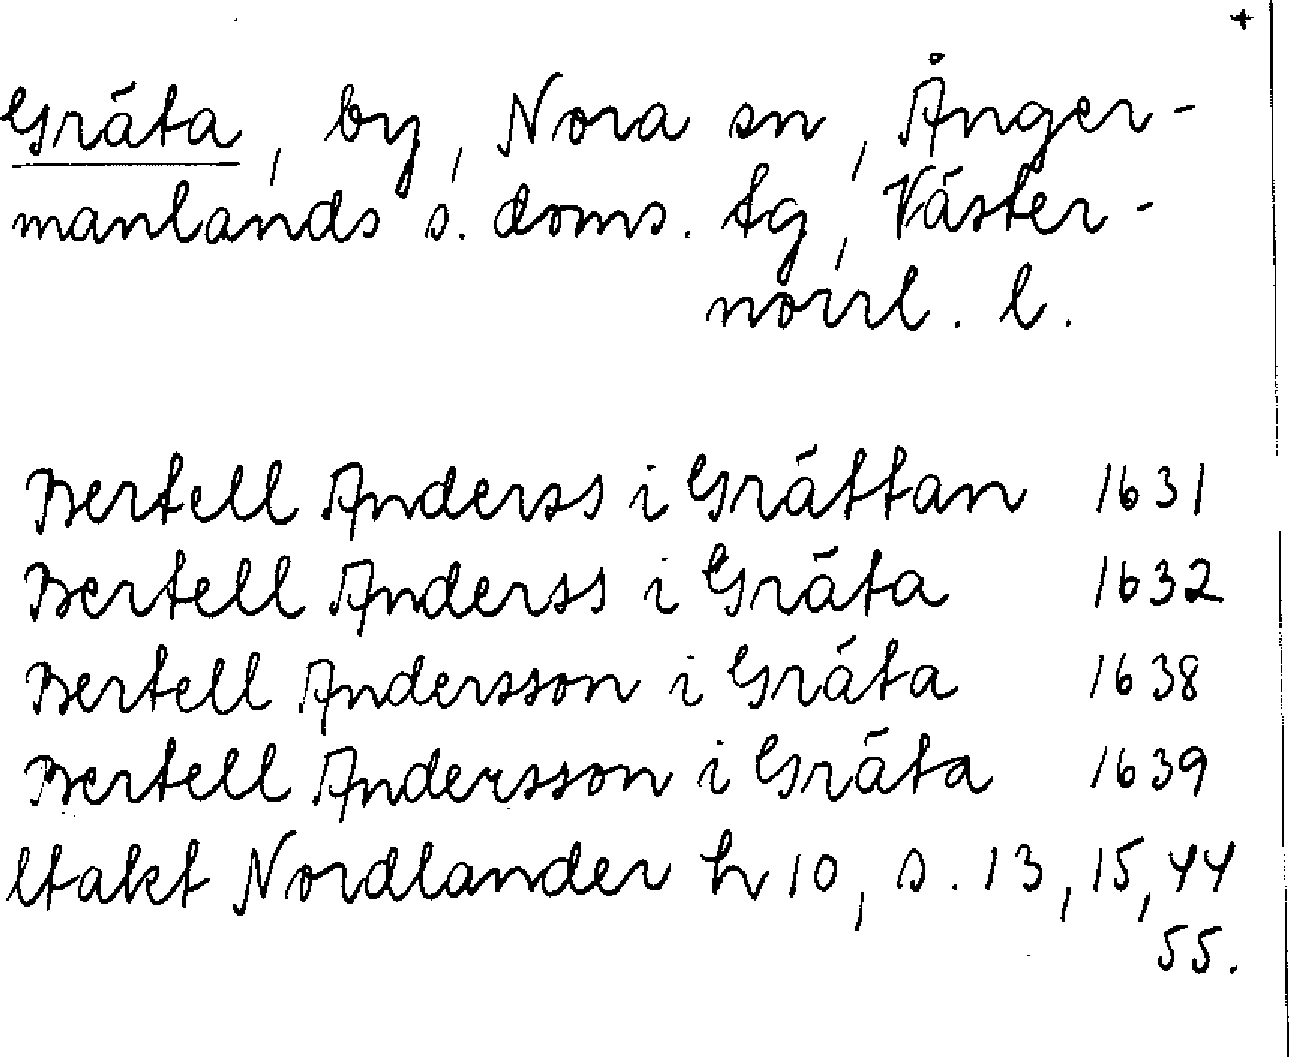 +
Gräta, by, Nora sn, Ånger-
manlands s. doms. tg, Väster-
norrl. l.
Bertell Anderss i Grättan 1631
Bertell Anderss i Gräta 1632
Bertell Andersson i Gräta 1638
Bertell Andersson i Gräta 1639
Utakt Nordlander h 10, s. 13, 15, 44
55.